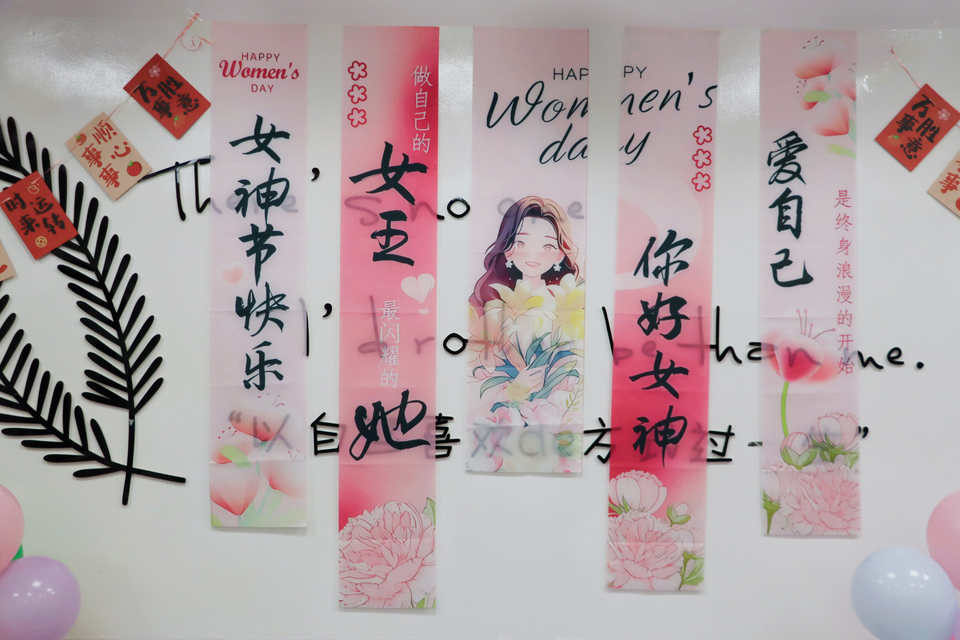 万事胜意
顺心事事
时来运转
HAPPY
Women's
DAY
女神节快乐
做自己的
女王
最闪耀的
她
HAPPY
Women's
day
你好女神
爱自己
是终身浪漫的开始
万事胜意
There's no one
than me.
“以自 喜欢de方 过一 ”